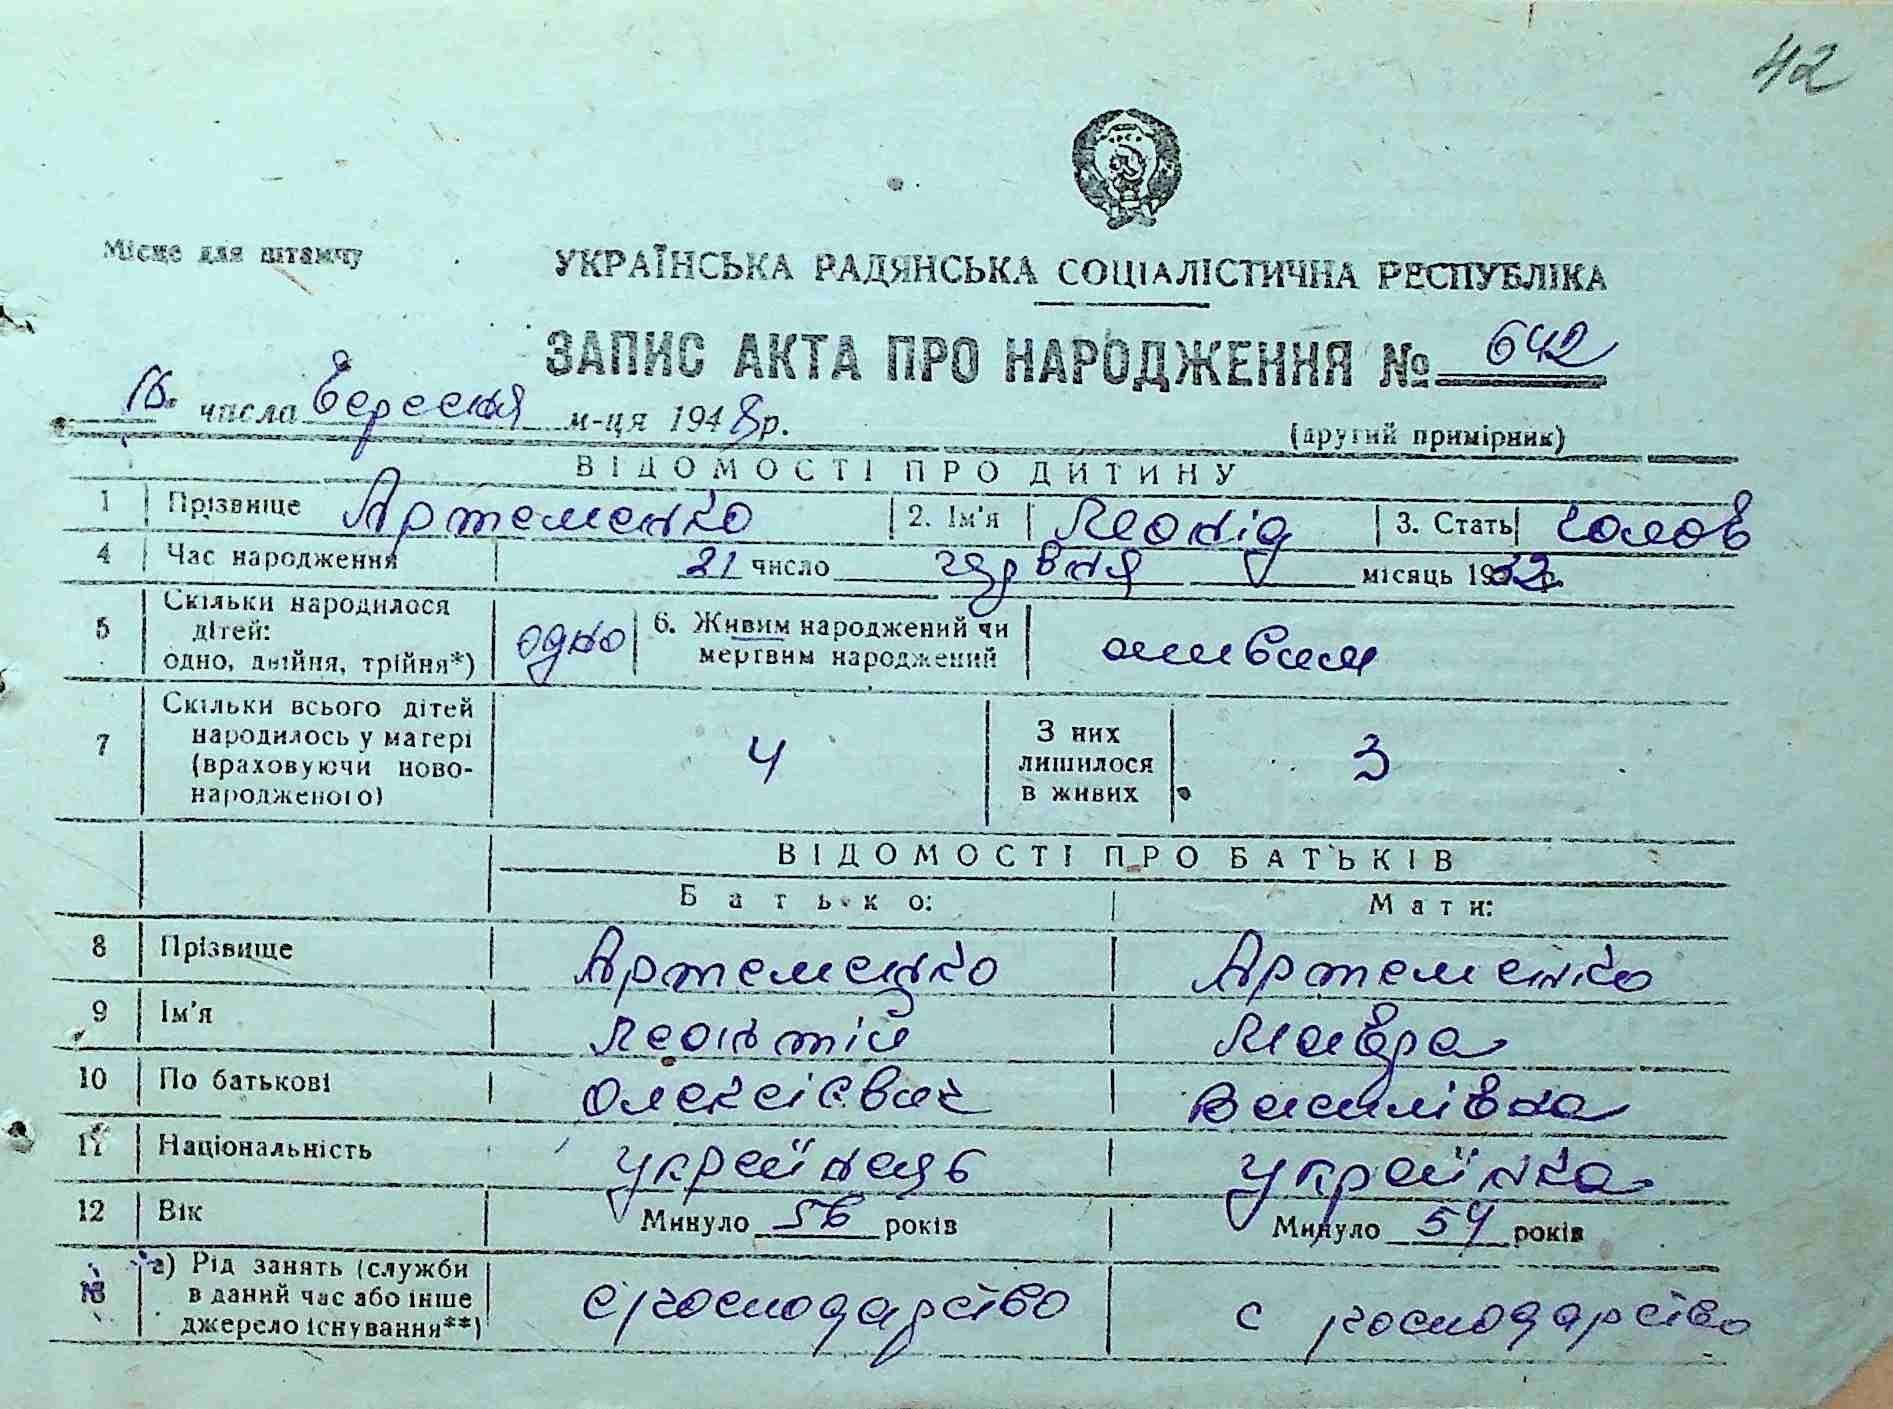 42
Місце для штампу
УКРАЇНСЬКА РАДЯНСЬКА СОЦІАЛІСТИЧНА РЕСПУБЛІКА
ЗАПИС АКТА ПРО НАРОДЖЕННЯ № 642
числа березня м-ця 1948 р.
(другий примірник)
ВІДОМОСТІ ПРО ДИТИНУ
1 Прізвище Артеменко 2. Ім'я Леонід 3. Стать чолов
4 Час народження 21 число червня місяць 1932 р.
5 Скільки народилося дітей: одно, двійня, трійня*) одно 6. Живим народжений чи мертвим народжений живим
7 Скільки всього дітей народилось у матері (враховуючи новонародженого) 4 З них лишилося в живих 3
ВІДОМОСТІ ПРО БАТЬКІВ
Батько: Мати:
8 Прізвище Артеменко Артеменко
9 Ім'я Леонтій Мавра
10 По батькові Олексієвич Василівна
11 Національність українець українка
12 Вік Минуло 56 років Минуло 54 років
13 а) Рід занять (служби в даний час або інше джерело існування**) с господарство с господарство